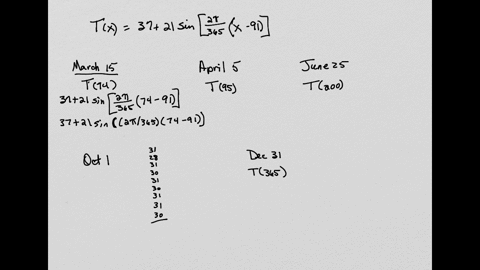 T(x) = 37+21 sin [2π/365 (x -91)]
March 15
T(74)
37+21 sin [2π/365 (74 -91)]
37+21 sin ((2π/365)(74 -91))
April 5
T(95)
June 25
T(200)
Oct 1
31
28
31
30
31
30
31
31
30
Dec 31
T(365)